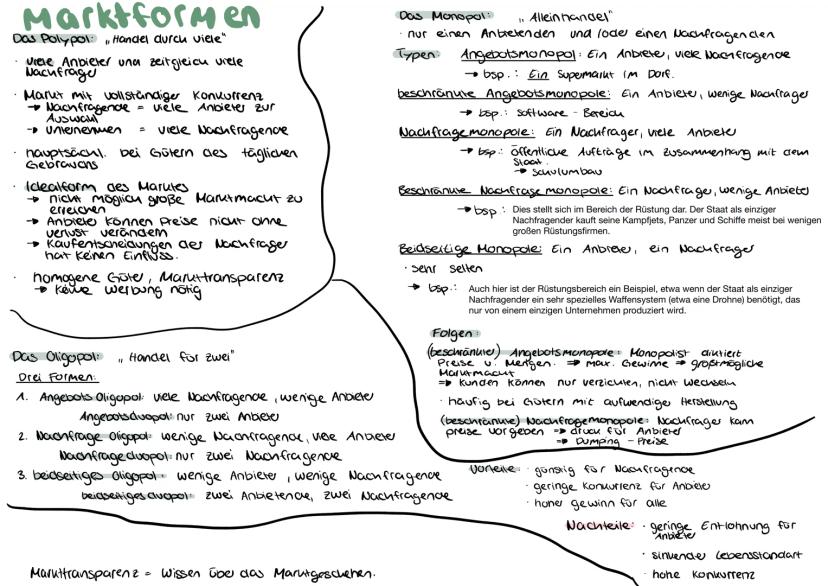 Marktformen
Das Polypol: „Handel durch viele"
· viele Anbieter und zeitgleich viele
Nachfrager
· Markt mit vollständiger Konkurrenz
→ Nachfragende = viele Anbieter zur
Auswahl
→ unternehmen = viele Nachfragende
· hauptsächl. bei Gütern des täglichen
Gebrauchs
· Idealform des Marktes
→ nicht möglich große Marktmacht zu
erreichen
→ Anbieter können Preise nicht ohne
verlust verändern
→ Kaufentscheidungen der Nachfrager
hat keinen Einfluss.
· homogene Güter, Markttransparenz
→ keine Werbung nötig
Das Oligopol: „Handel für zwei"
Drei Formen:
1. Angebots Oligopol: viele Nachfragende, wenige Anbieter
Angebotsduopol: nur zwei Anbieter
2. Nachfrage Oligopol: wenige Nachfragende, viele Anbieter
Nachfrageduopol: nur zwei Nachfragende
3. beidseitiges Oligopol: wenige Anbieter, wenige Nachfragende
beidseitiges duopol: zwei Anbietende, zwei Nachfragende
Markttransparenz = Wissen über das Marktgeschehen.
Das Monopol: „Alleinhandel"
· nur einen Anbietenden und/oder einen Nachfragenden
Typen: Angebotsmonopol: Ein Anbieter, viele Nachfragende
→ bsp.: Ein Supermarkt im Dorf.
beschränkte Angebotsmonopole: Ein Anbieter, wenige Nachfrager
→ bsp.: Software-Bereich
Nachfragemonopole: Ein Nachfrager, viele Anbieter
→ bsp.: öffentliche Aufträge im Zusammenhang mit dem
Staat.
→ schulumbau
Beschränkte Nachfragemonopole: Ein Nachfrager, wenige Anbieter
→ bsp.: Dies stellt sich im Bereich der Rüstung dar. Der Staat als einziger
Nachfragender kauft seine Kampfjets, Panzer und Schiffe meist bei wenigen
großen Rüstungsfirmen.
Beidseitige Monopole: Ein Anbieter, ein Nachfrager
· sehr selten
→ bsp.: Auch hier ist der Rüstungsbereich ein Beispiel, etwa wenn der Staat als einziger
Nachfragender ein sehr spezielles Waffensystem (etwa eine Drohne) benötigt, das
nur von einem einzigen Unternehmen produziert wird.
Folgen:
(beschränkte) Angebotsmonopole: Monopolist diktiert
Preise u. Mengen. ⇒ max. Gewinne ⇒ größtmögliche
Marktmacht
⇒ Kunden können nur verzichten, nicht wechseln
· häufig bei Gütern mit aufwendiger Herstellung
(beschränkte) Nachfragemonopole: Nachfrager kann
preise vorgeben ⇒ druck für Anbieter
⇒ Dumping-Preise
Vorteile: · günstig für Nachfragende
· geringe Konkurrenz für Anbieter
· hoher gewinn für alle
Nachteile: · geringe Entlohnung für
Anbieter
· sinkender Lebensstandart
· hohe Konkurrenz